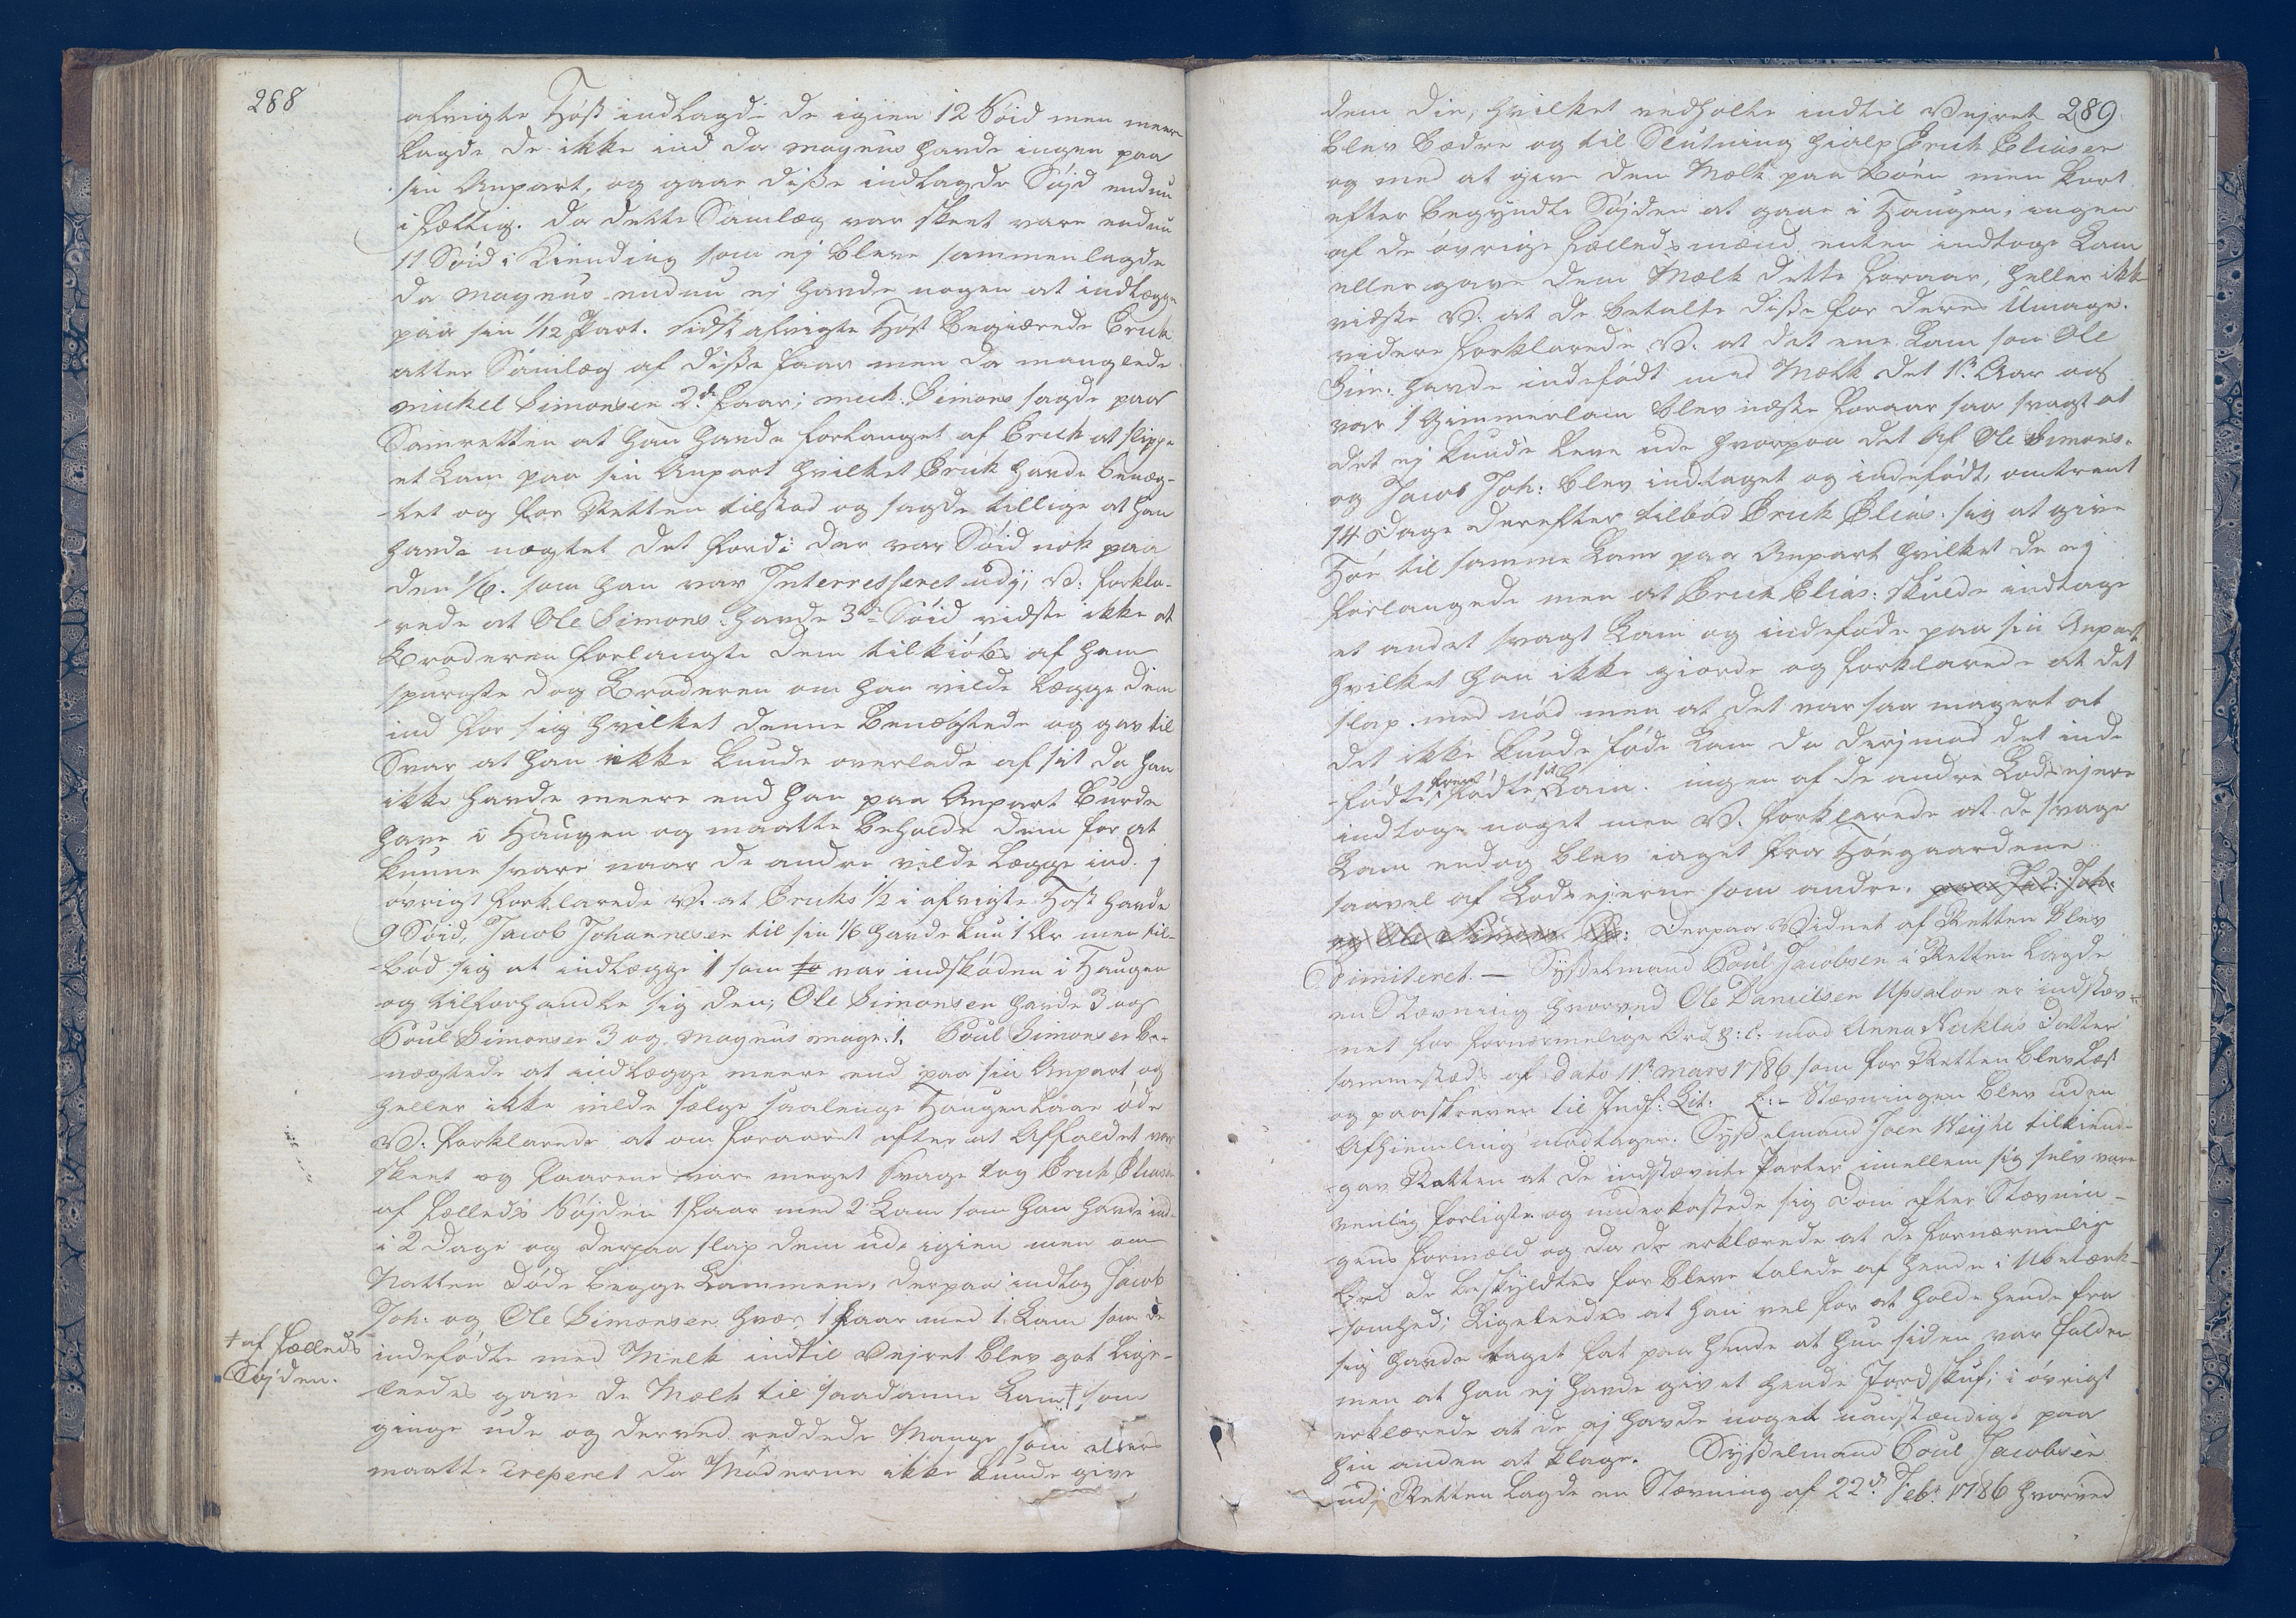 288
afvigte Høst indlagde de igien 12 Søid men meere
lagde de ikke ind da Magnus havde ingen paa
sin Anpart, og gaar disse indlagde Søjd endnu
i fællig. da dette Samlæg var skeet vare endnu
11 Søid i Kiending som ej bleve sammenlagde
da Magnus endnu ej havde nogen at indlægge
paa sin 1/12 Part. sidst afvigte Høst begiærede Erich
atter Samlæg af disse faar men da manglede
Mickel Simonsen 2de faar; Mich: Simons: sagde paa
Samretten at han havde forlanget af Erich at slippe
et Lam paa sin Anpart hvilket Erich havde benæg-
-tet og for Retten tilstod og sagde tillige at han
havde nægtet det fordi der var Søid nok paa
den 1/6. som han var Interresseret udj, V: forkla-
-rede at Ole Simons: havde 3de Søid vidste ikke at
Broderen forlangte dem tilkiøbs af ham
spurgte dog Broderen om han vilde lægge dem
ind for sig hvilket denne benægtede og gav til
Svar at han ikke kunde overlade af sit da han
ikke havde meere end han paa Anpart burde
have i Haugen og maatte beholde dem for at
kunne svare naar de andre vilde lægge ind. j
øvrigt forklarede V: at Erichs 1/2 i afvigte Høst havde
9 Søid, Jacob Johannesen til sin 1/6 havde kun 1 Ær men til-
-bød sig at indlægge 1 som to var indskøden i Haugen
og tilforhandle sig den; Ole Simonsen havde 3 og
Poul Simonsen 3 og Magnus Magn: 1. Poul Simonsen be-
-nægtede at indlægge meere end paa sin Anpart og
heller ikke vilde sælge saalenge Haugen laae øde
V: forklarede at om foraaret efter at Affaldet var
skeet og faarene vare meget svage tog Erich Eliasen
af fælleds Søjden 1 faar med 2 Lam som han havde inde
i 2 Dage og derpaa slap dem ude igien men om
Natten døde begge Lammene, derpaa indtog Jacob
Joh: og Ole Simonsen hver 1 faar med 1 Lam som de
indefødte med Melk indtil Vejret blev got lige-
-leedes gave de Melk til saadanne Lam † som
ginge ude og derved reddede Mange som ellers
maatte creperet da Møderne ikke kunde give
† af fælleds
Søjden.
289
dem Die, hvilket vedholte indtil Vejret
blev bædre og til Slutning hialp Erich Eliasen
og med at give dem Mælk paa Bøen men kort
efter begyndte Søjden at gaae i Haugen, ingen
af de øvrige fælledsmænd enten indtoge Lam
eller gave dem Mælk dette foraar, heller ikke
vidste V: at de betalte disse for deres Umage.
videre forklarede V: at det ene Lam som Ole
Sim: havde indefødt med Mælk det 1te Aar og
var 1 Gimmerlam blev næste foraar saa svagt at
det ej kunde leve ude hvorpaa det af Ole Simons:
og Jacob Joh: blev indtaget og indefødt, omtrent
14 Dage derefter tilbød Erich Elias: sig at give
Høe til samme Lam paa Anpart hvilket de ej
forlangede men at Erich Elias: skulde indtage
et andet svagt Lam og indeføde paa sin Anpart
hvilket han ikke giorde og forklarede at det
slap med nød men at det var saa magert at
det ikke kunde føde Lam da derjmod det inde
-fødte frem fødte sit Lam. ingen af de andre Lodsejere
indtoge noget men V: forklarede at de svage
Lam endog blev jaget fra Høegaardene
saavel af Lodsejerne som andre. paa Jac: Joh:
og Ole Simons Derpaa Vidnet af Retten blev
Dimiteret. — Sysselmand Poul Jacobsen i Retten lagde
en Stævning hvorved Ole Danielsen Upsaløe er indstæv-
-net for fornærmelige Ord &: c: mod Anna Nicklas Datter
sammesteds af Dato 11te Mars 1786 som for Retten blev læst
og paaskreven til Indf: Lit. L:- Stævningen blev uden
Afhiemling modtagen. Sysselmand Joen Weyhe tilkiende-
-gav Retten at de indstævnte Parter imellem sig selv vare
venlig forligte og underkastede sig Dom efter Stævnin-
-gens formæld og da de erklærede at de fornærmelige
Ord de beskyldtes for bleve talede af hende i Ubetænk-
-somhed; ligeleedes at han vel for at holde hende fra
sig havde taget fat paa hende at hun siden var falden
men at han ej havde givet hende Jordskuf; i øvrigt
erklærede at de ej havde noget uanstændigt paa
hin anden at klage. Sysselmand Poul Jacobsen
udj Retten lagde en Stævning af 22de Feb: 1786 hvorved